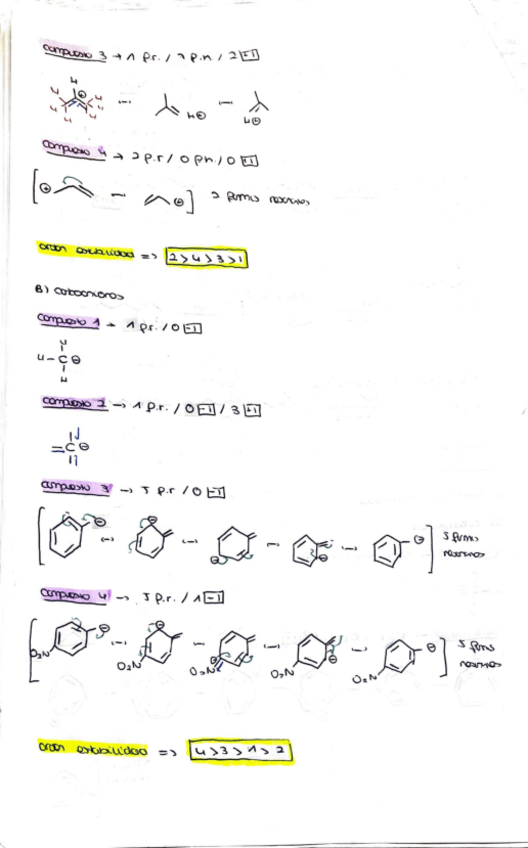 compuesto 3 → 1 p.r. / 7 p.n / 2 [+I]
H
H H H H H H
H⊕ H⊕
compuesto 4 → 2 p.r / 0 p.n / 0 [+I]
[⊕ ↔ ⊕] 2 formas resonantes
orden estabilidad => 2 > 4 > 3 > 1
B) carbaniones
compuesto 1 → 1 p.r. / 0 [-I]
H
H - C ⊖
H
compuesto 2 → 1 p.r. / 0 [-I] / 3 [+I]
= C ⊖
compuesto 3 → 5 p.r / 0 [-I]
5 formas resonantes
compuesto 4 → 5 p.r. / 1 [-I]
O₂N O₂N O₂N O₂N O₂N 5 formas resonantes
orden estabilidad => 4 > 3 > 1 > 2